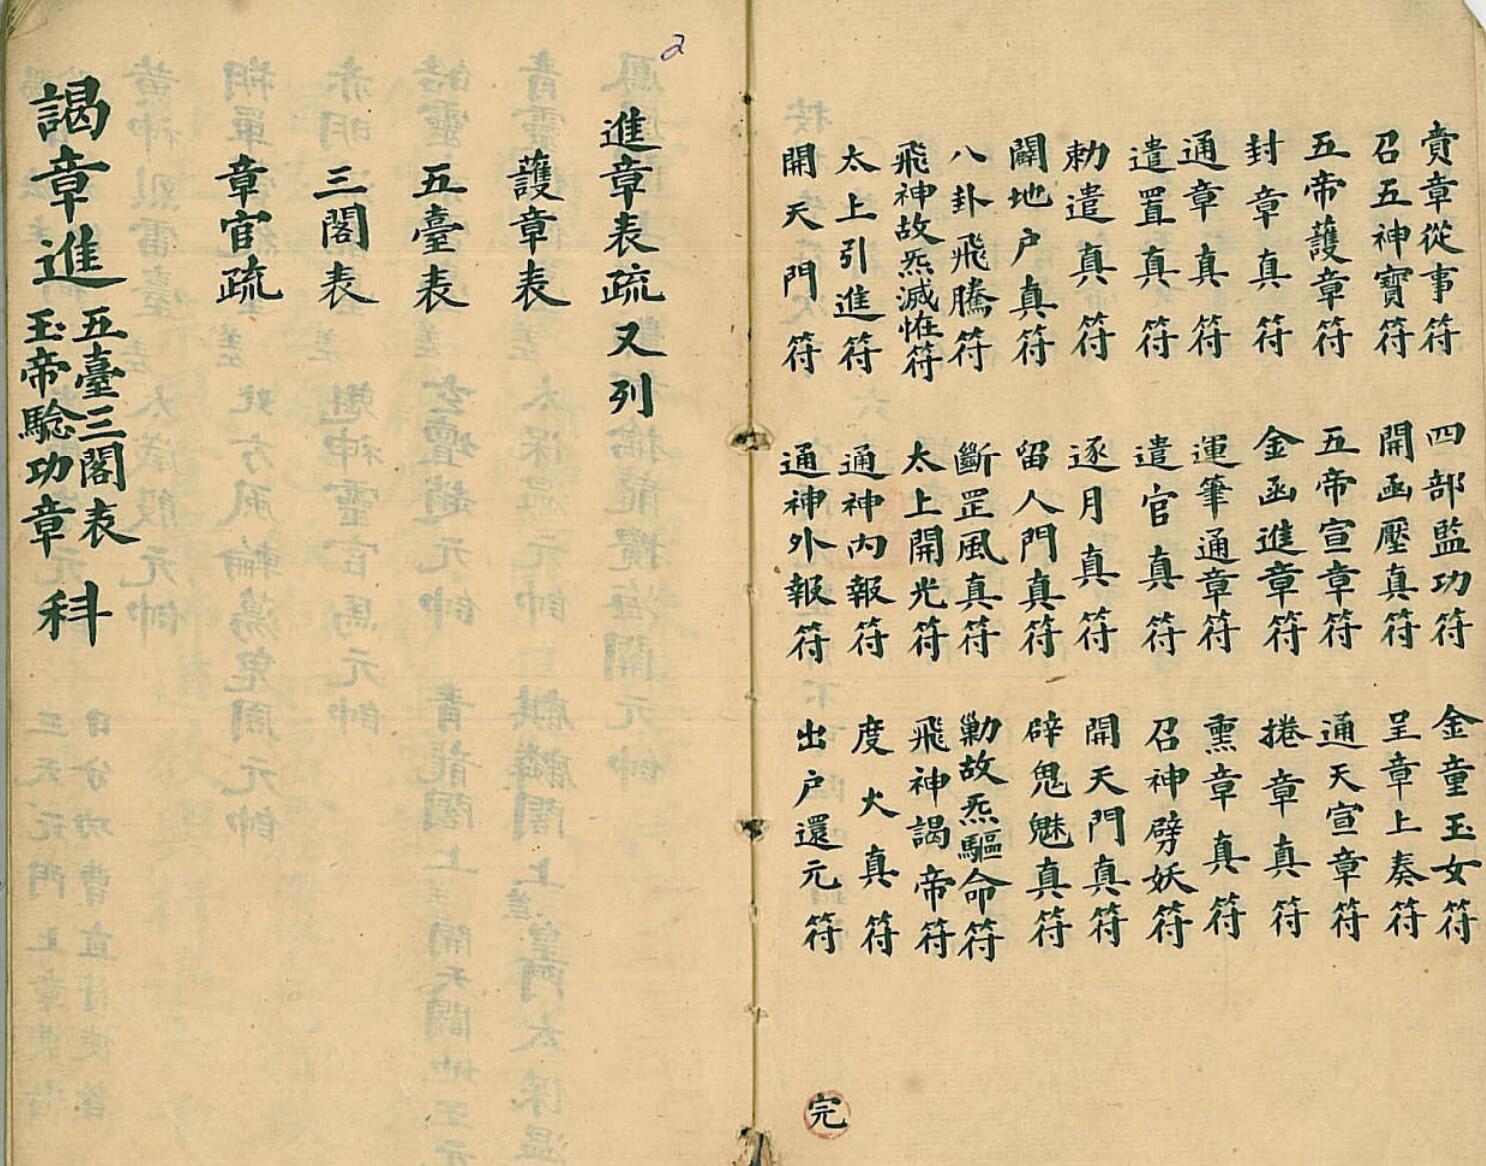 賫章從事符 四部監功符 金童玉女符
召五神寶符 開函壓真符 呈章上奏符
五帝護章符 五帝宣章符 通天宣章符
封章真符 金函進章符 捲章真符
通章真符 運筆通章符 熏章真符
遣置真符 遣官真符 召神劈妖符
勅遣真符 逐月真符 開天門真符
闢地户真符 留人門真符 辟鬼魅真符
八卦飛騰符 斷罡風真符 勦故炁驅命符
飛神故炁滅恠符 太上開光符 飛神謁帝符
太上引進符 通神內報符 度火真符
開天門符 通神外報符 出户還元符
完
2
進章表疏又列
護章表
五臺表
三閣表
章官疏
謁章進五臺三閣表
玉帝驗功章科